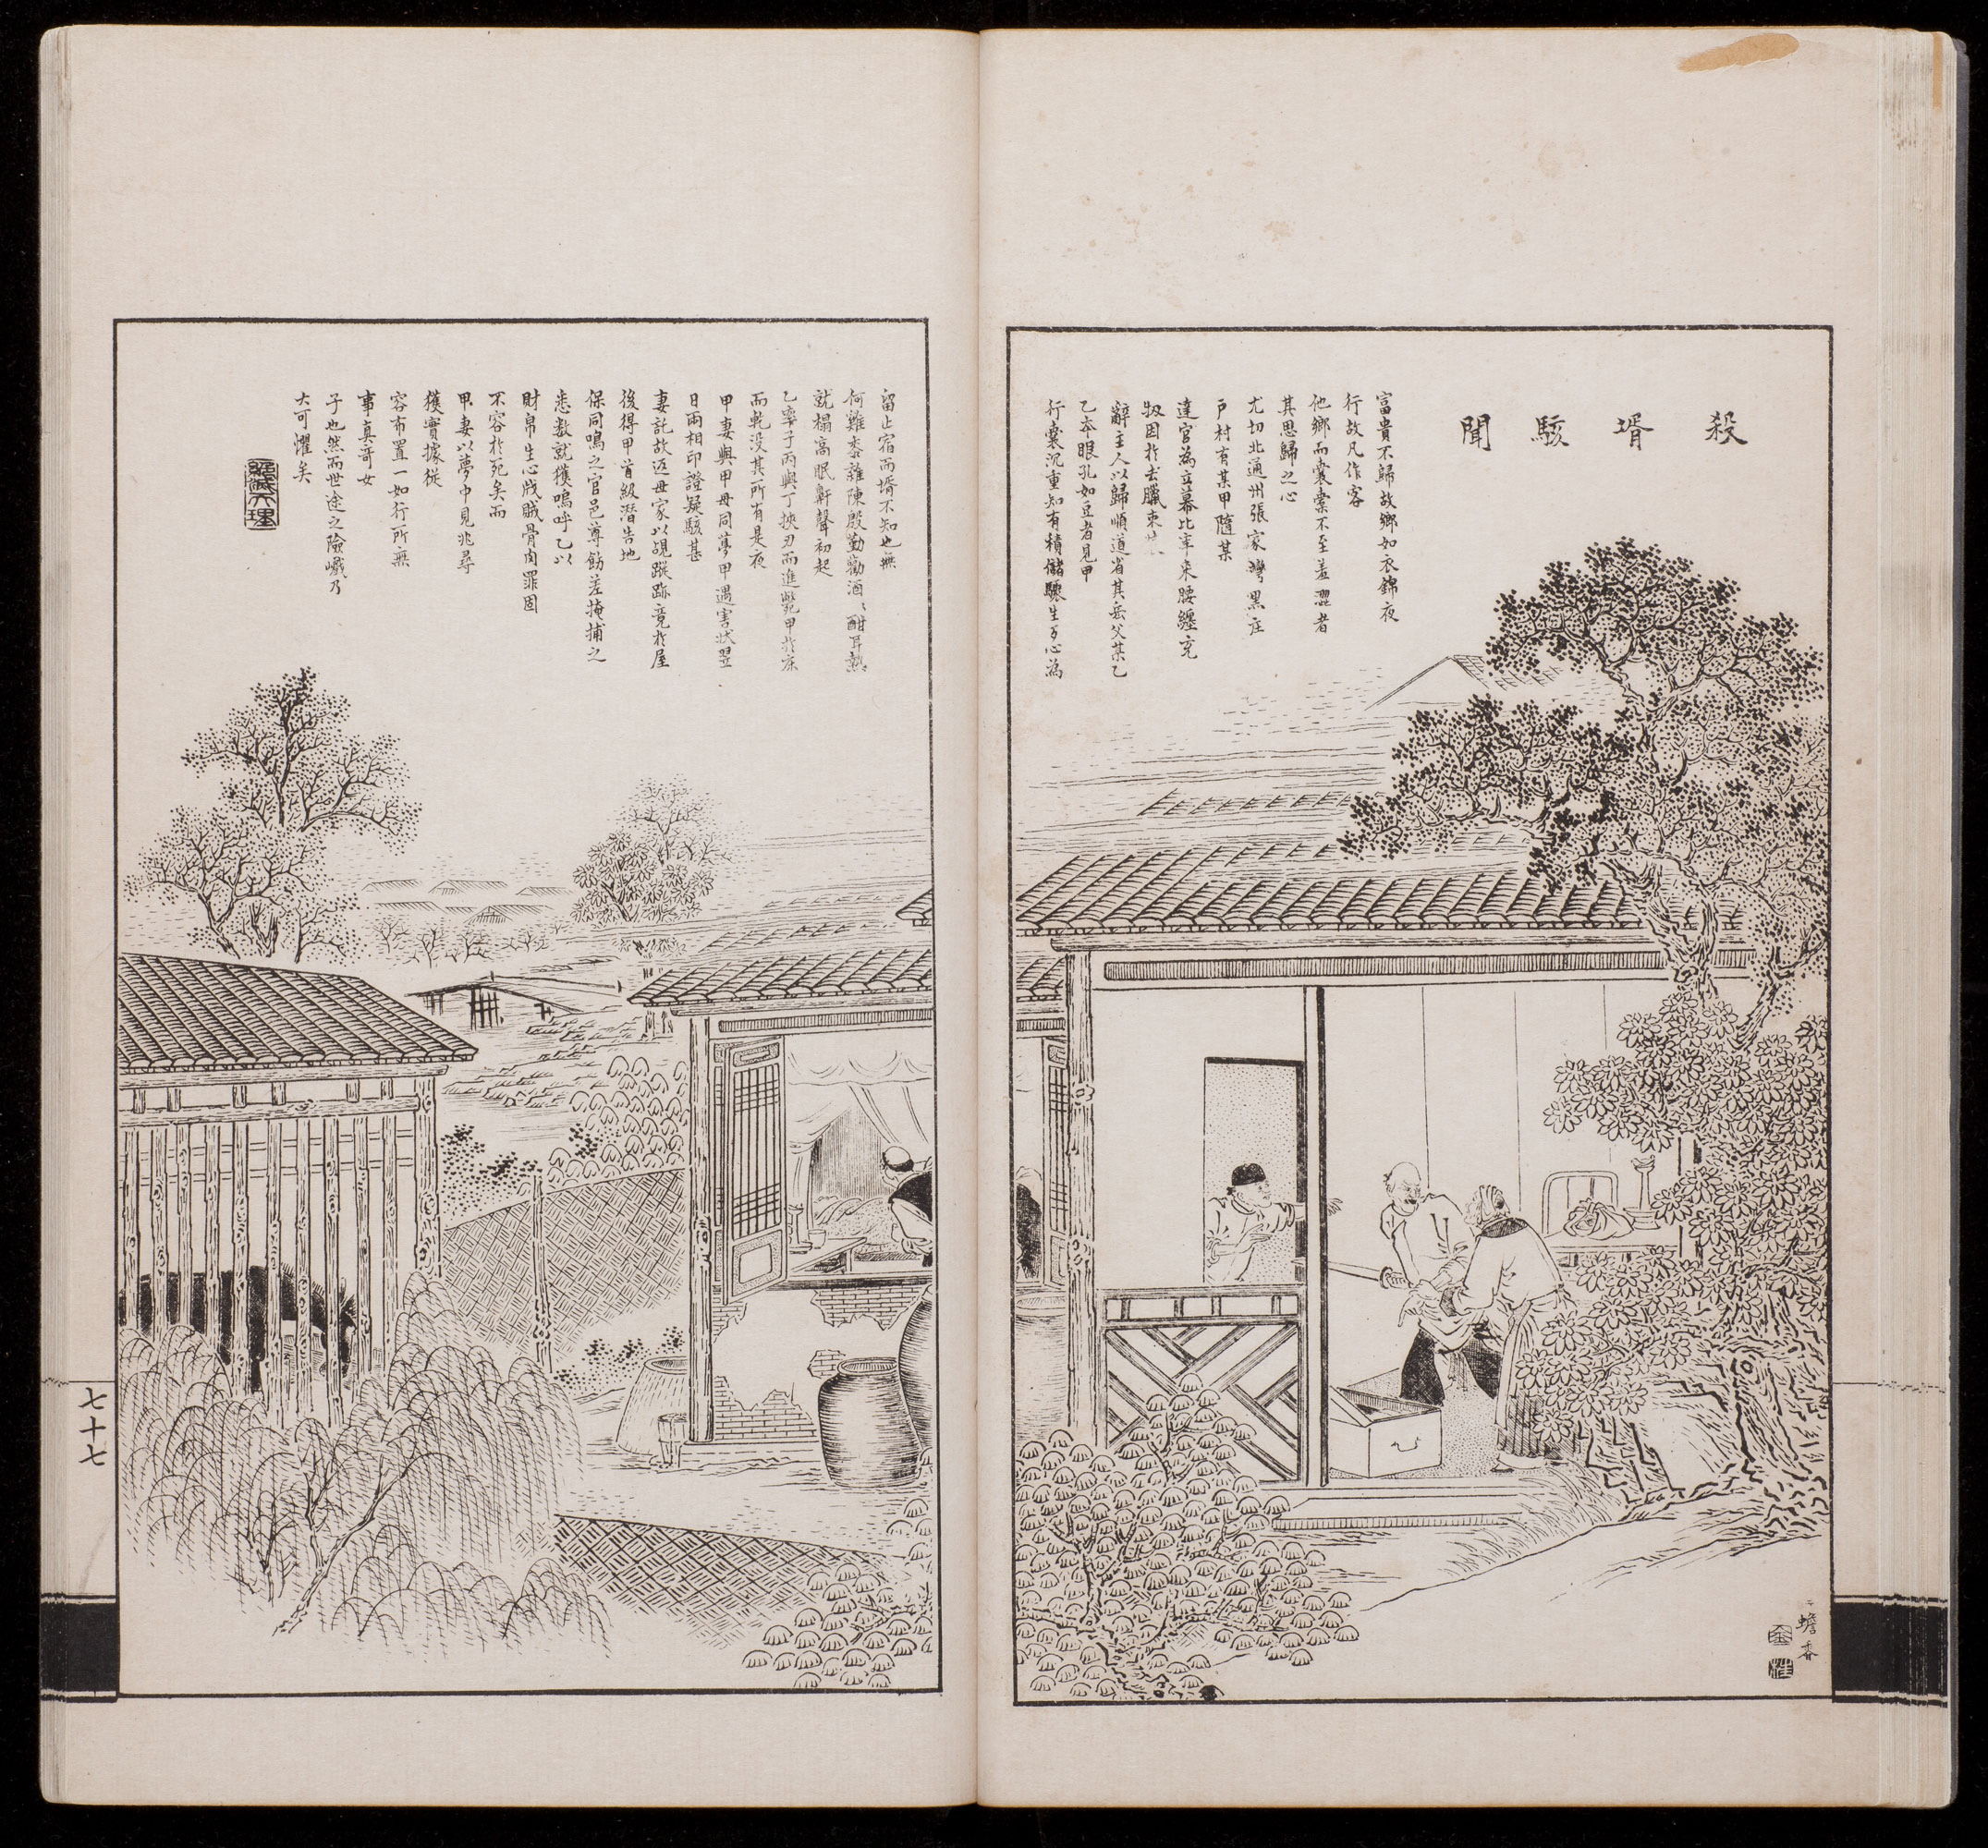 殺壻駭聞
富貴不歸故鄉如衣錦夜
行故凡作客
他鄉而囊橐不至羞澀者
其思歸之心
尤切北通州張家灣里庄
戶村有某甲隨某
達官為立幕比年來腰纏充
牣因於去臘束
辭主人以歸順道省其岳父某乙
乙本眼孔如豆者見甲
行囊沉重知有積儲驟生歹心為
留止宿而壻不知也無
何雞黍雜陳殷勤勸酒酒酣耳熱
就榻高眠鼾聲初起
乙率子丙與丁挾刃而進斃甲於床
而乾沒其所有是夜
甲妻與甲母同夢甲遇害狀翌
日兩相印證疑駭甚
妻託故返母家以覘蹤跡竟於屋
後得甲首級潛告地
保同鳴之官邑尊飭差掩捕之
悉數就獲嗚呼乙以
財帛生心戕賊骨肉罪固
不容於死矣而
甲妻以夢中見兆尋
獲實據從
容布置一如行所無
事真奇女
子也然而世途之險巇乃
大可懼矣
蟾香
七十七